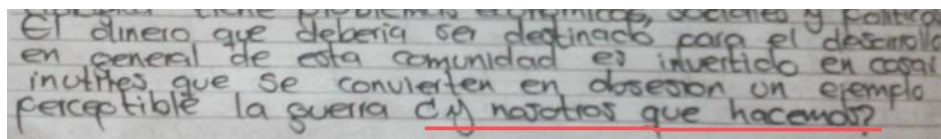 tiene problemas económicos, sociales y politica
El dinero que deberia ser destinado para el desarrollo
en general de esta comunidad es invertido en cosas
inutiles que se convierten en obsesion un ejemplo
perceptible la guerra ¿Y nosotros que hacemos?